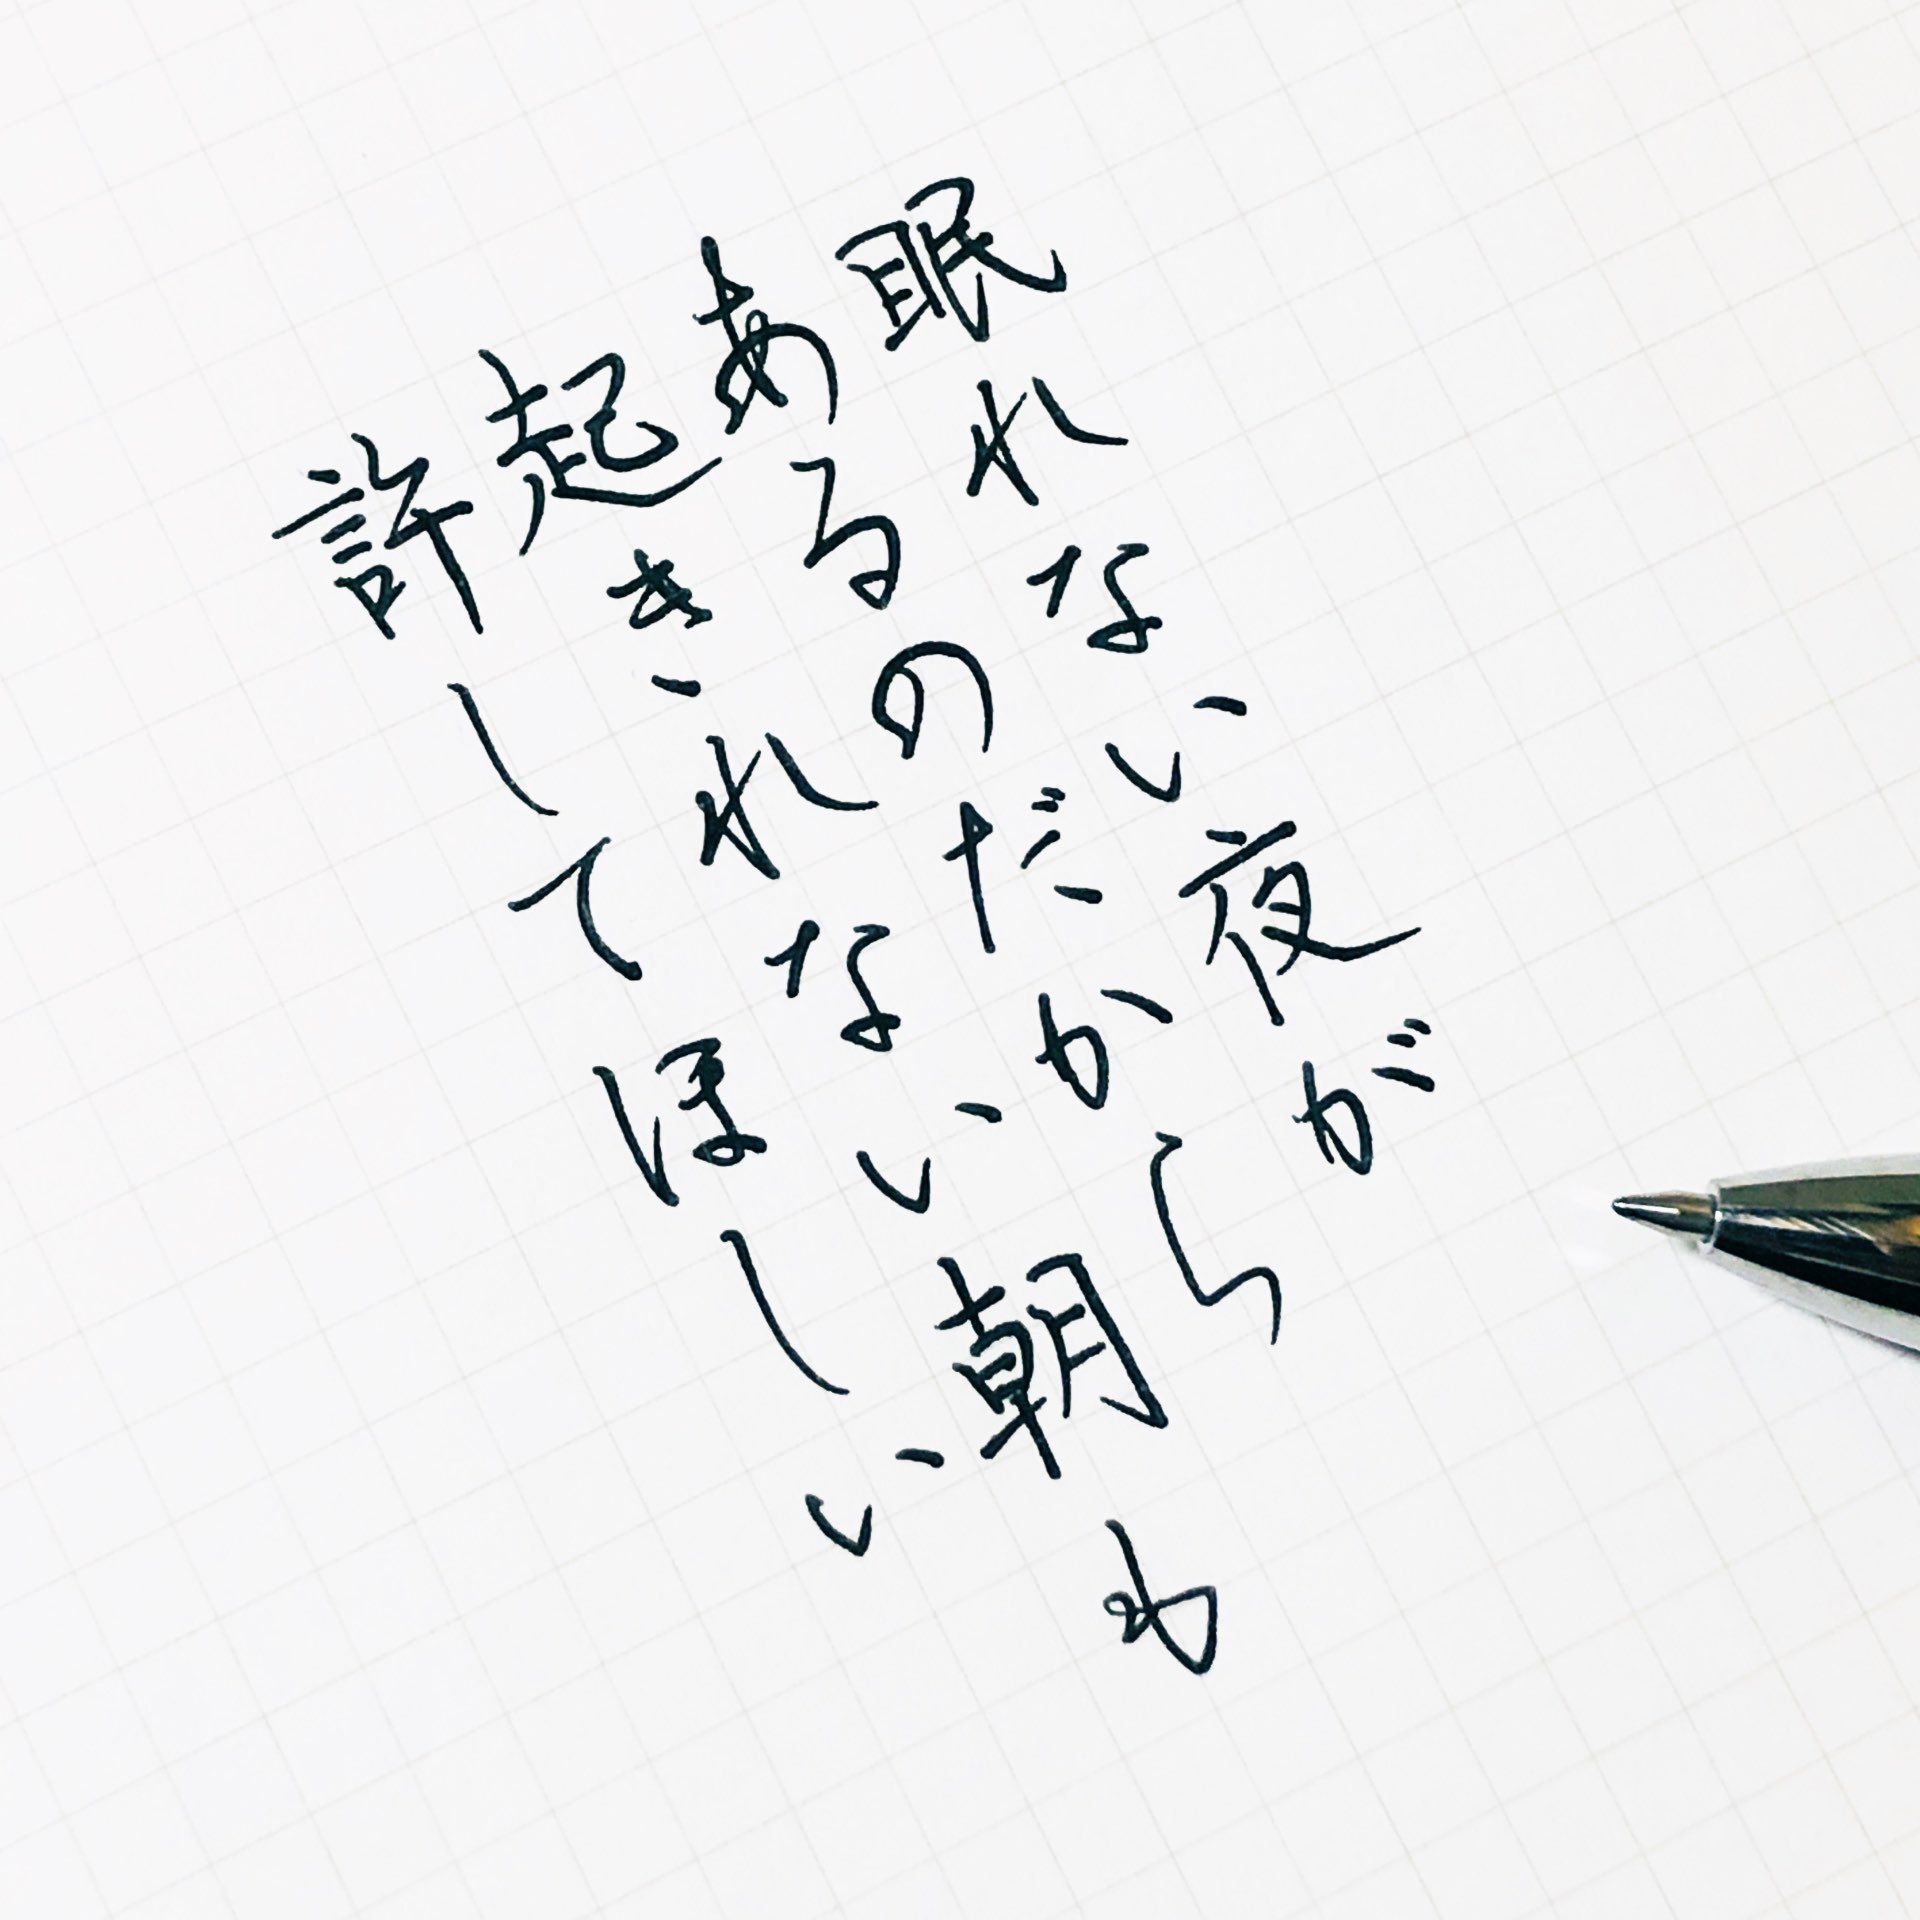 眠れない夜が
あるのだから
起きれない朝も
許してほしい